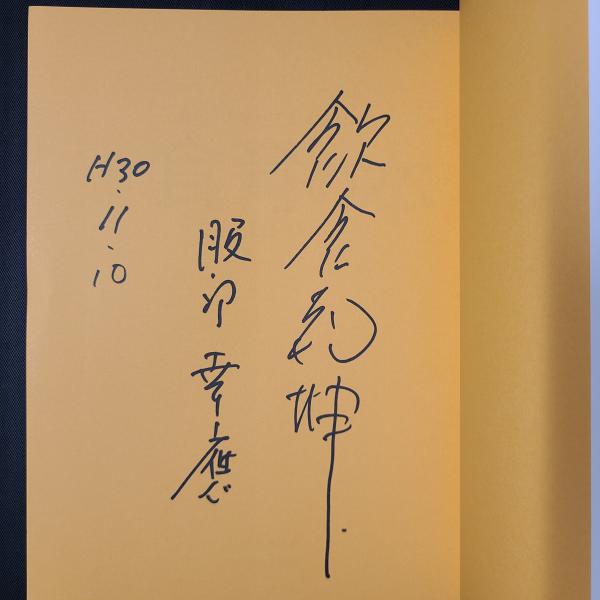 飲食乾坤
服部幸應
H30・11・10